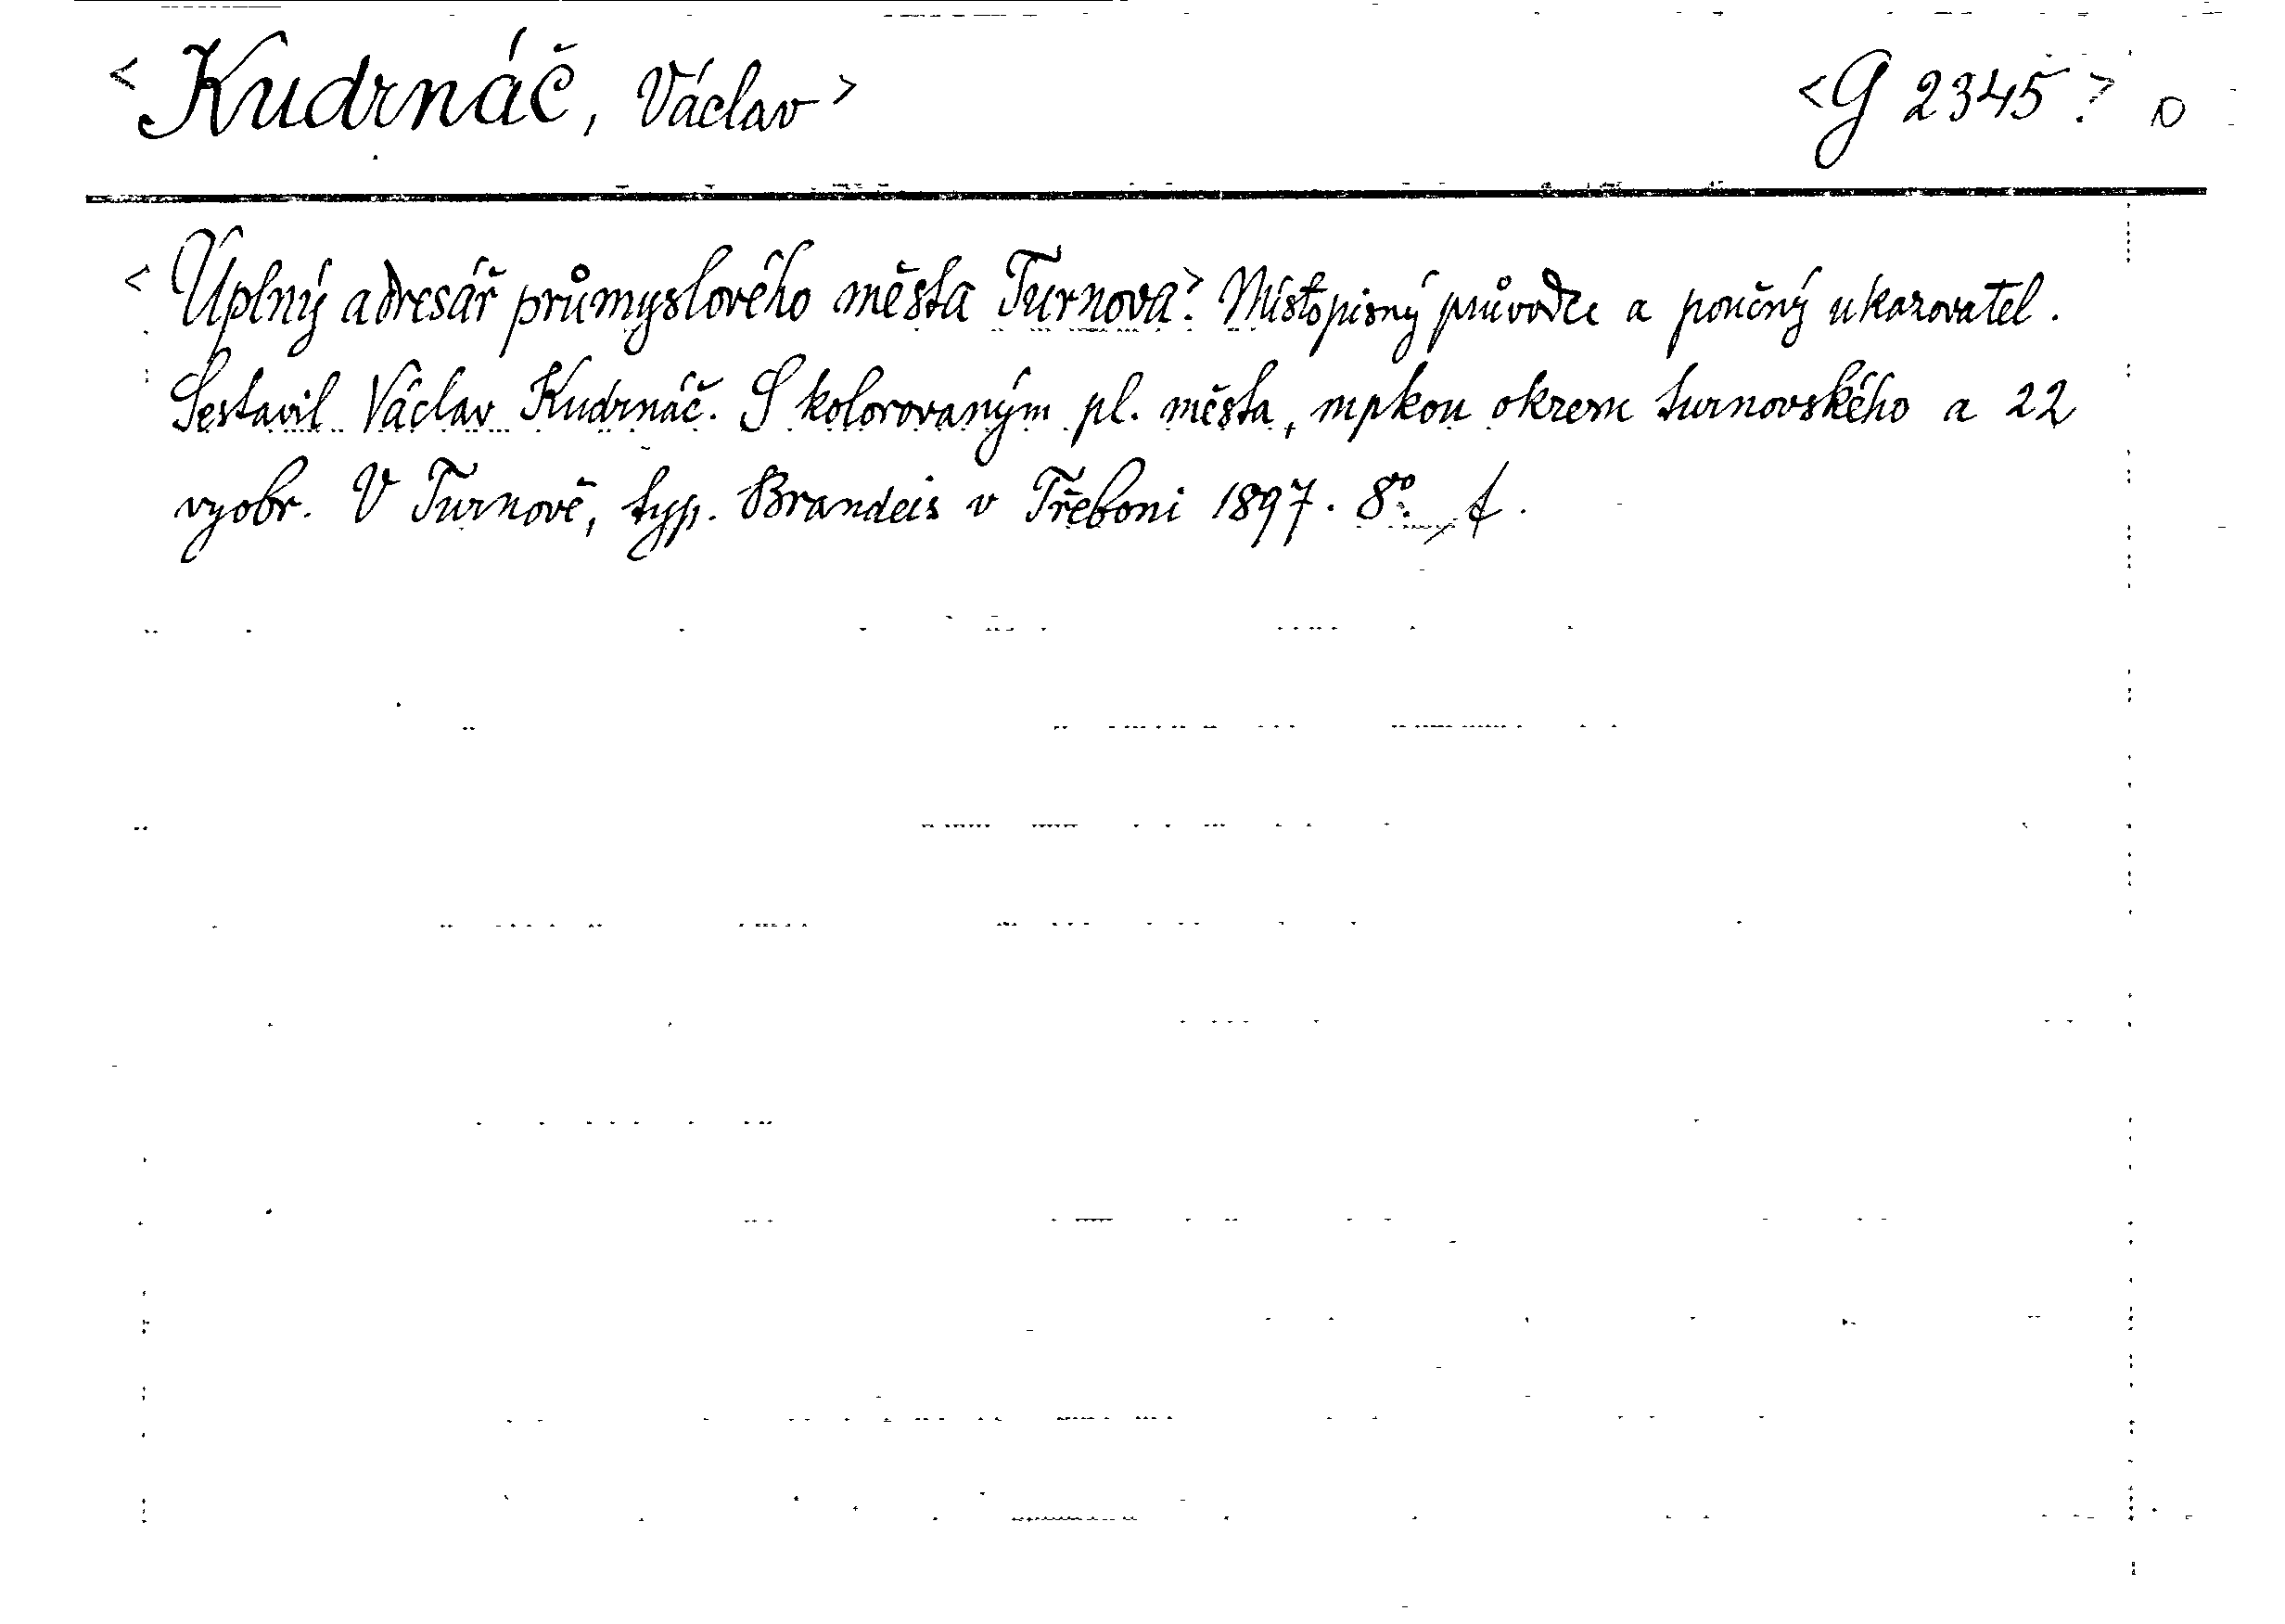 <Kudrnáč, Václav> <G 2345.> D
<Úplný adresář průmyslového města Turnova.> Místopisný průvodce a poučný ukazovatel.
Sestavil Václav Kudrnáč. S kolorovaným pl. města, mpkou okresu turnovského a 22
vyobr. V Turnově, typ. Brandeis v Třeboni 1897. 8°.